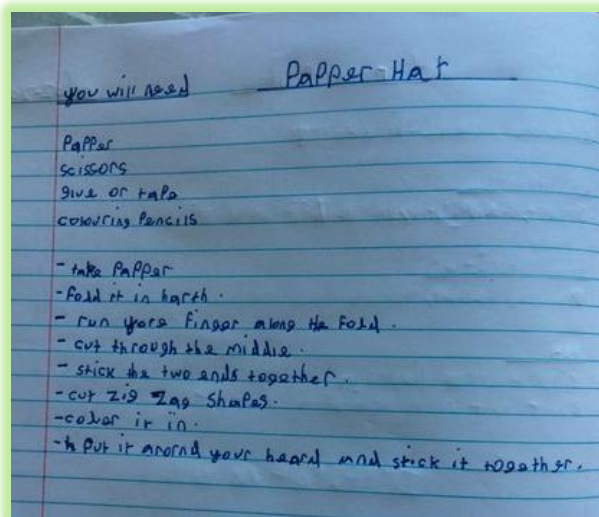 Papper Hat
you will need
Papper
scissors
glue or tape
colouring Pencils
- take Papper
- Fold it in harth.
- run yore finger along the Fold.
- cut through the middle.
- stick the two ends together.
- cut zig zag shapes.
- color it in.
- put it arornd your heard and stick it together.